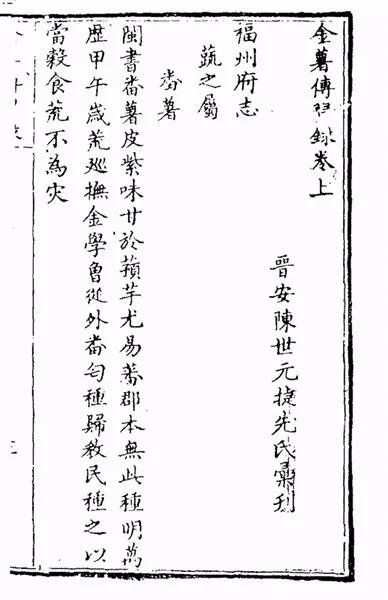 金薯傳習錄卷上
晉安陳世元捷先氏彙刋
福州府志
蔬之屬
畨薯
閩書畨薯皮紫味甘於蘋芋尤易蕃郡本無此種明萬
歴甲午歲荒廵撫金學曾從外畨匄種歸教民種之以
當榖食荒不為灾